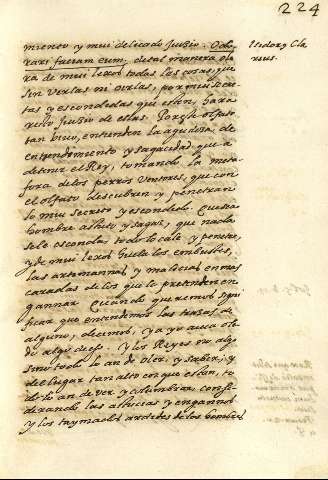 224
miento y mui delicado juizio. Odo-
rari faciam eum, de tal manera ole-
rá de mui lexos todas las cosas, que
sin verlas ni oirlas, por mui secre-
tas y escondidas que esten, hara
recto juizio de ellas. Por el olfato
tan bivo, entienden la agudeza, de
entendimiento y sagacidad, que a
de tener el Rey, tomando la meta-
fora de los perros ventores, que con
el olfato descubren y penetran
lo mui secreto y escondido. Que sea
hombre astuto, y sagaz, que nada
se le esconda, todo lo cale, y penetre,
y de mui lexos huela los embustes,
las artimannas y malicias enmas
caradas de los que le pretenden en
gannar. Quando queremos signi
ficar que entendemos las trazas de
alguno, decimos, ya yo avia oli
do algo de eso. Y los Reyes en al
suno todo lo an de oler, y saber, y
del lugar tan alto en que estan, to
do lo an de ver, y columbrar, consi
derando las astucias y engannos
y los tuymados ardides de los hombres
Isidoro Cla
rius.